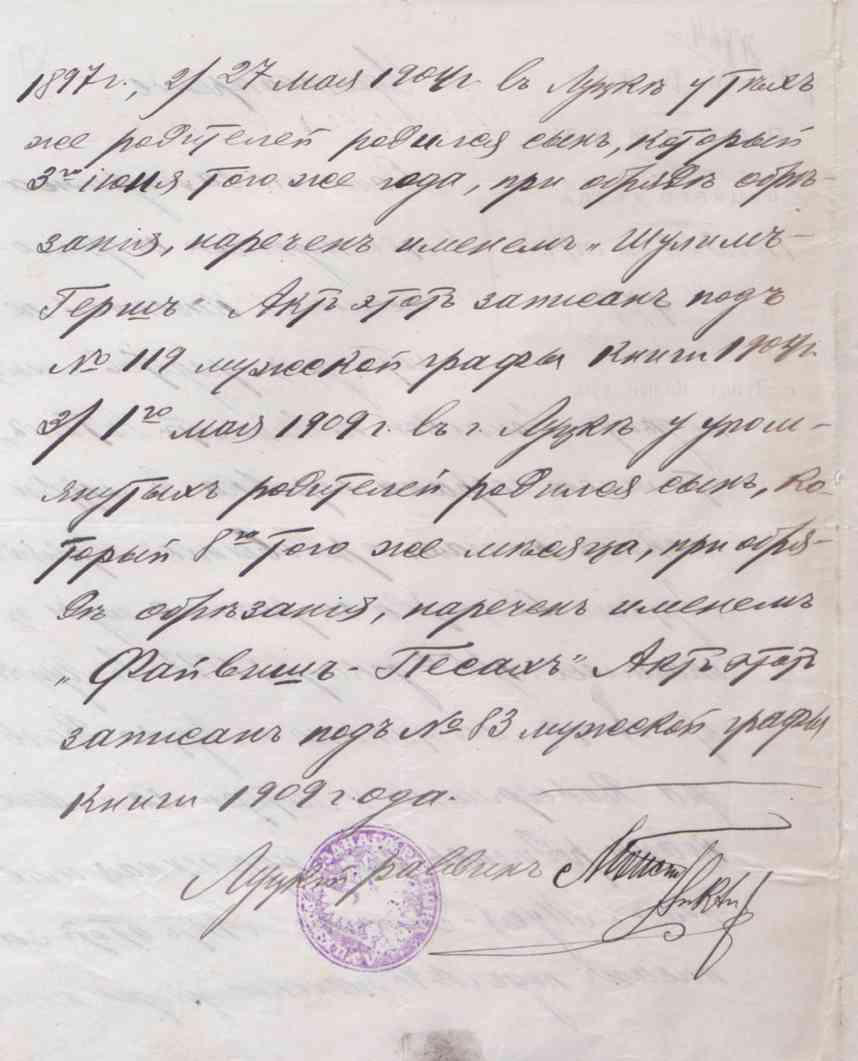 1897 г., 2/ 27 мая 1904 г. въ Луцкѣ у тѣхъ
же родителей родился сынъ, который
3го іюня того же года, при обрядѣ обрѣ-
занія, нареченъ именемъ „Шулимъ-
Гершъ" Актъ этотъ записанъ подъ
№ 119 мужской графы книги 1904 г.
3/ 1го мая 1909 г. въ г. Луцкѣ у упом-
янутыхъ родителей родился сынъ, ко-
торый 8го того же мѣсяца, при обря-
дѣ обрѣзанія, нареченъ именемъ
„Файвишъ-Песахъ" Актъ этотъ
записанъ подъ № 83 мужской графы
книги 1909 года.
Луцкій раввинъ